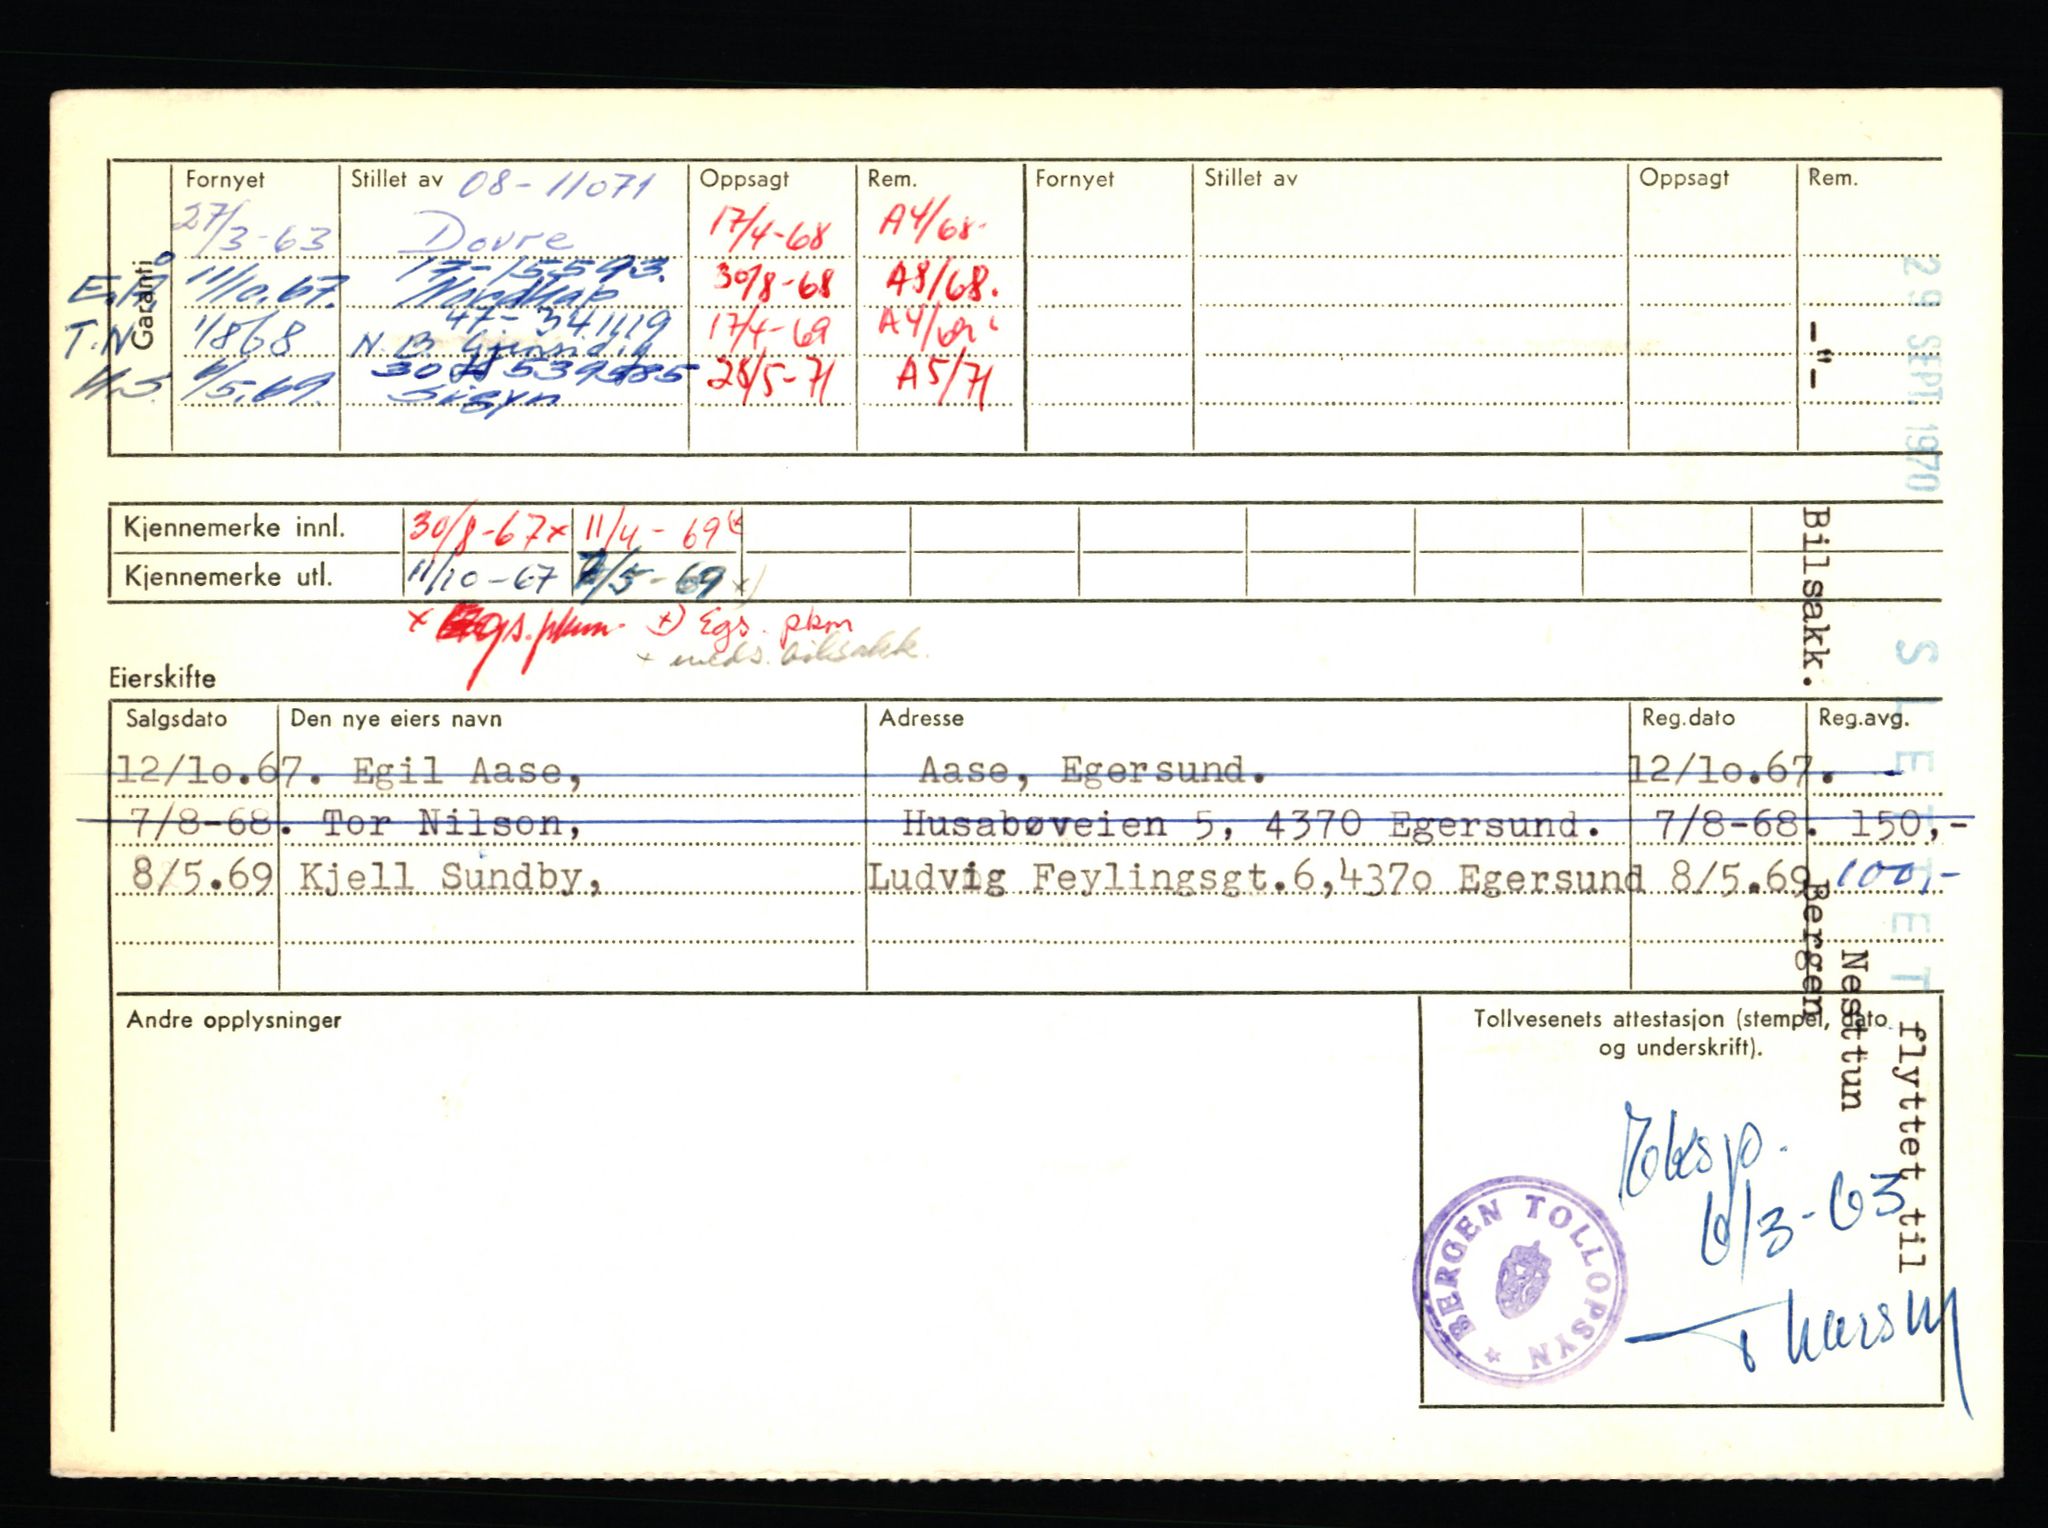 Garanti
Fornyet Stillet av 08-11071 Oppsagt Rem. Fornyet Stillet av Oppsagt Rem.
27/3-63 Dovre 17/4-68 A4/68.
17-15593.
E.Å. 11/10.67. Nordkap 30/8-68 A8/68.
47-341119
T.N. 1/8 68 N.B. Gjensidig 17/4-69 A4/69
6/5.69. Sigyn 28/5-71 A5/71
Kjennemerke innl. 30/8-67x 11/4-69
Kjennemerke utl. 11/10-67 7/5-69 x)
x Egs. pkm. x) Egs. pkm
x meds. bilsakk.
Eierskifte
Salgsdato Den nye eiers navn Adresse Reg.dato Reg.avg.
12/1o.67. Egil Aase, Aase, Egersund. 12/1o.67. -
7/8-68. Tor Nilson, Husabøveien 5, 4370 Egersund. 7/8-68. 150,-
8/5.69 Kjell Sundby, Ludvig Feylingsgt.6,437o Egersund 8/5.69 100,-
Andre opplysninger
Tollvesenets attestasjon (stempel, dato
og underskrift).
Eksp.
6/3-63
BERGEN TOLLOPSYN
29 SEPT. 1970
SLETTET
flyttet til
Nesttun
-"- Bilsakk. Bergen